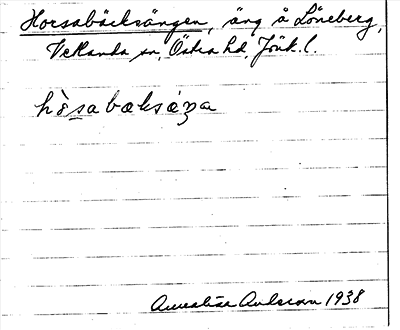 Horsabäcksängen, äng å Löneberg,
Vetlanda sn, Östra hd, Jönk. l.
hòsabæksæŋa
Annalisa 1938